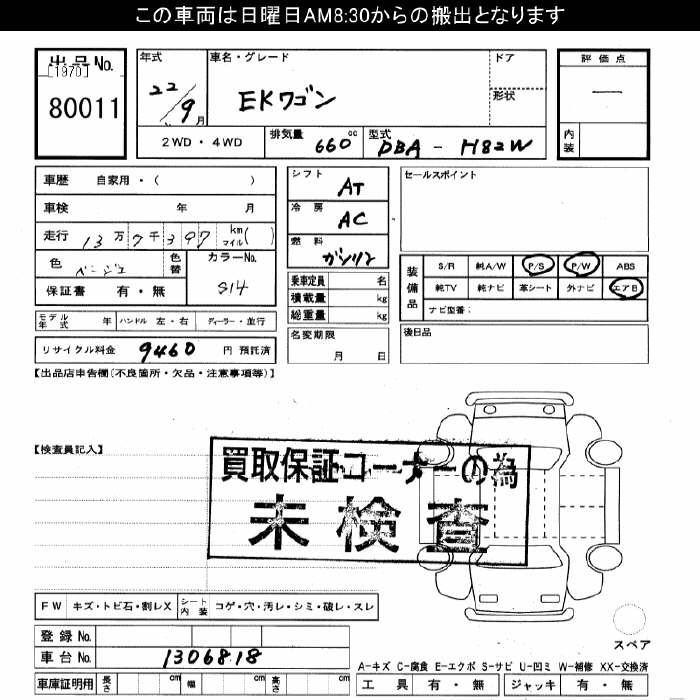 この車両は日曜日AM8:30からの搬出となります
出品No.
[1970]
80011
年式 22/9月
車名・グレード EKワゴン
ドア
形状
評価点 —
内装
2WD・4WD
排気量 660cc
型式 DBA-H82W
車歴 自家用・( )
車検 年 月
走行 13万7千397 km マイル( )
色 ベージュ 色替
カラーNo. S14
保証書 有・無
シフト AT
冷房 AC
燃料 ガソリン
乗車定員 名
積載量 kg
総重量 kg
セールスポイント
装備品
S/R 純A/W P/S P/W ABS
純TV 純ナビ 革シート 外ナビ エアB
ナビ型番:
モデル年式 年 ハンドル 左・右 ディーラー・並行
名変期限 月 日
後日品
リサイクル料金 9460 円 預託済
【出品店申告欄(不良箇所・欠品・注意事項等)】
【検査員記入】
買取保証コーナーの為
未検査
FW キズ・トビ石・割レX シート内装 コゲ・穴・汚レ・シミ・破レ・スレ
スペア
登録No.
車台No. 1306818
A-キズ C-腐食 E-エクボ S-サビ U-凹ミ W-補修 XX-交換済
車庫証明用 長さ cm 幅 cm 高さ cm
工具 有・無 ジャッキ 有・無